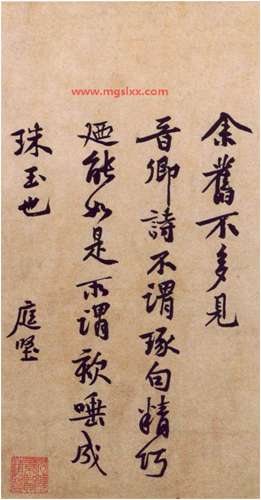 www.mgslxx.com
余舊不多見
晉卿詩不謂琢句精巧
廼能如是所謂欬唾成
珠玉也 庭堅